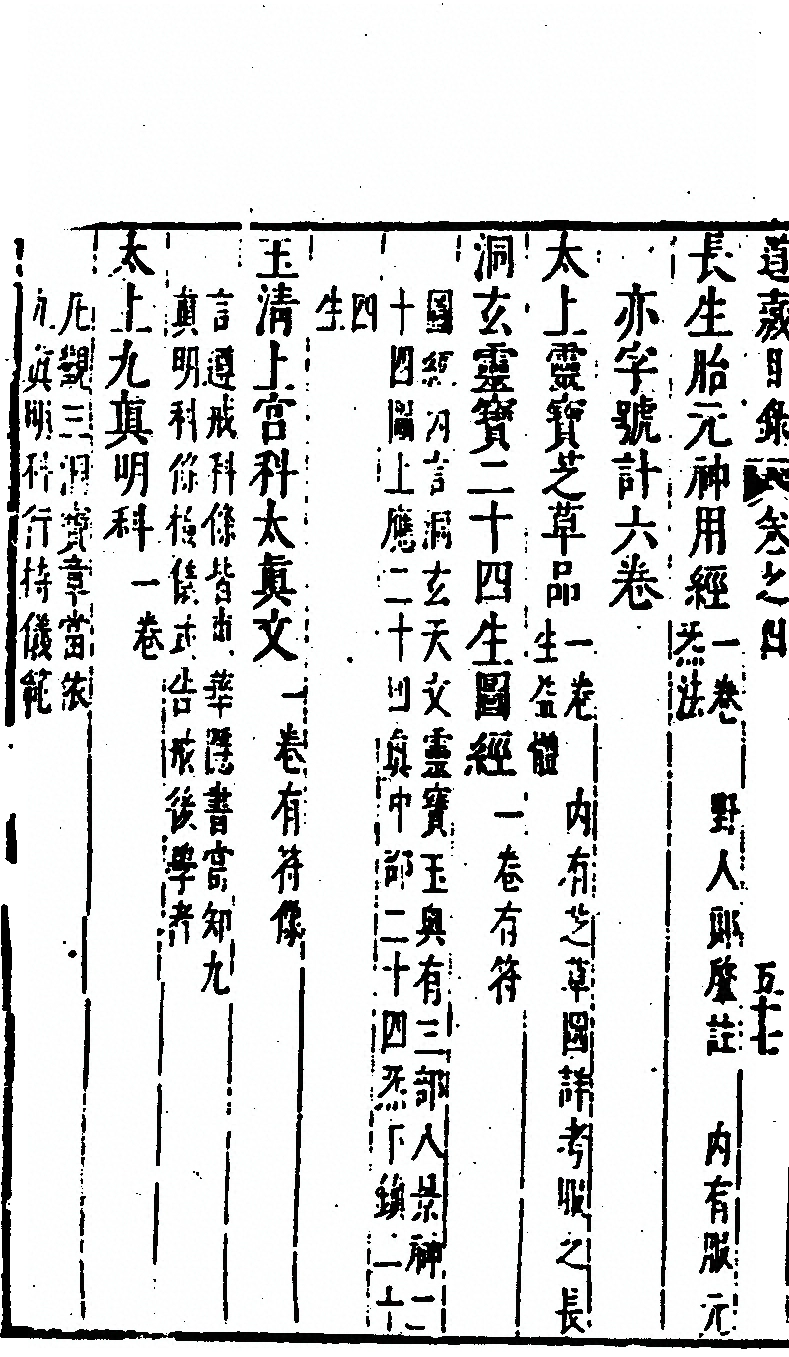 道藏目錄 卷之四 五十七
長生胎元神用經 一卷 野人鄭隱註 內有服元
炁法
亦字號計六卷
太上靈寶芝草品 一卷 內有芝草圖詳考服之長
生益體
洞玄靈寶二十四生圖經 一卷有符
圖經內言洞玄天文靈寶玉奧有三部八景神二
十四圖上應二十四真中部二十四炁下鎮二十
四
生
玉清上宮科太真文 一卷有符像
言遵戒科條皆出華隱書當知九
真明科條檢儀式告戒後學者
太上九真明科 一卷
凡觀三洞寶章當依
九真明科行持儀範